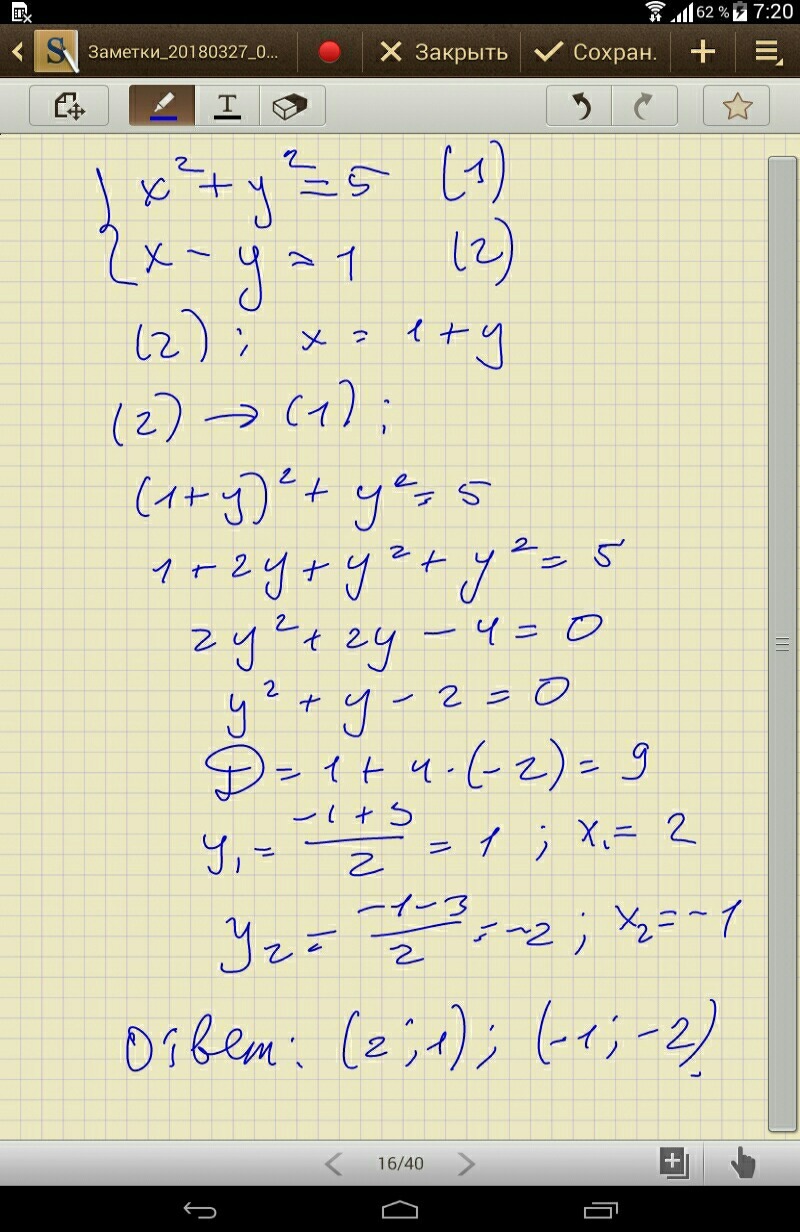 62 % 7:20
Заметки_20180327_0... Закрыть Сохран.
T
x²+y²=5 (1)
x-y=1 (2)
(2); x=1+y
(2)→(1);
(1+y)²+y²=5
1+2y+y²+y²=5
2y²+2y-4=0
y²+y-2=0
D=1+4·(-2)=9
y₁=(-1+3)/2=1; x₁=2
y₂=(-1-3)/2=-2; x₂=-1
Ответ: (2;1); (-1;-2)
16/40